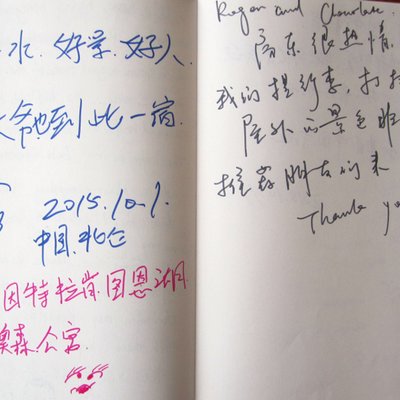 水. 好景. 好人.
到此一宿.
2015.10.1.
中国.北仑
因特拉肯.图恩湖
森.公寓
and
房东很热情.
我的提行李, 打
屋外的景色非
推荐朋友们来
Thank yo